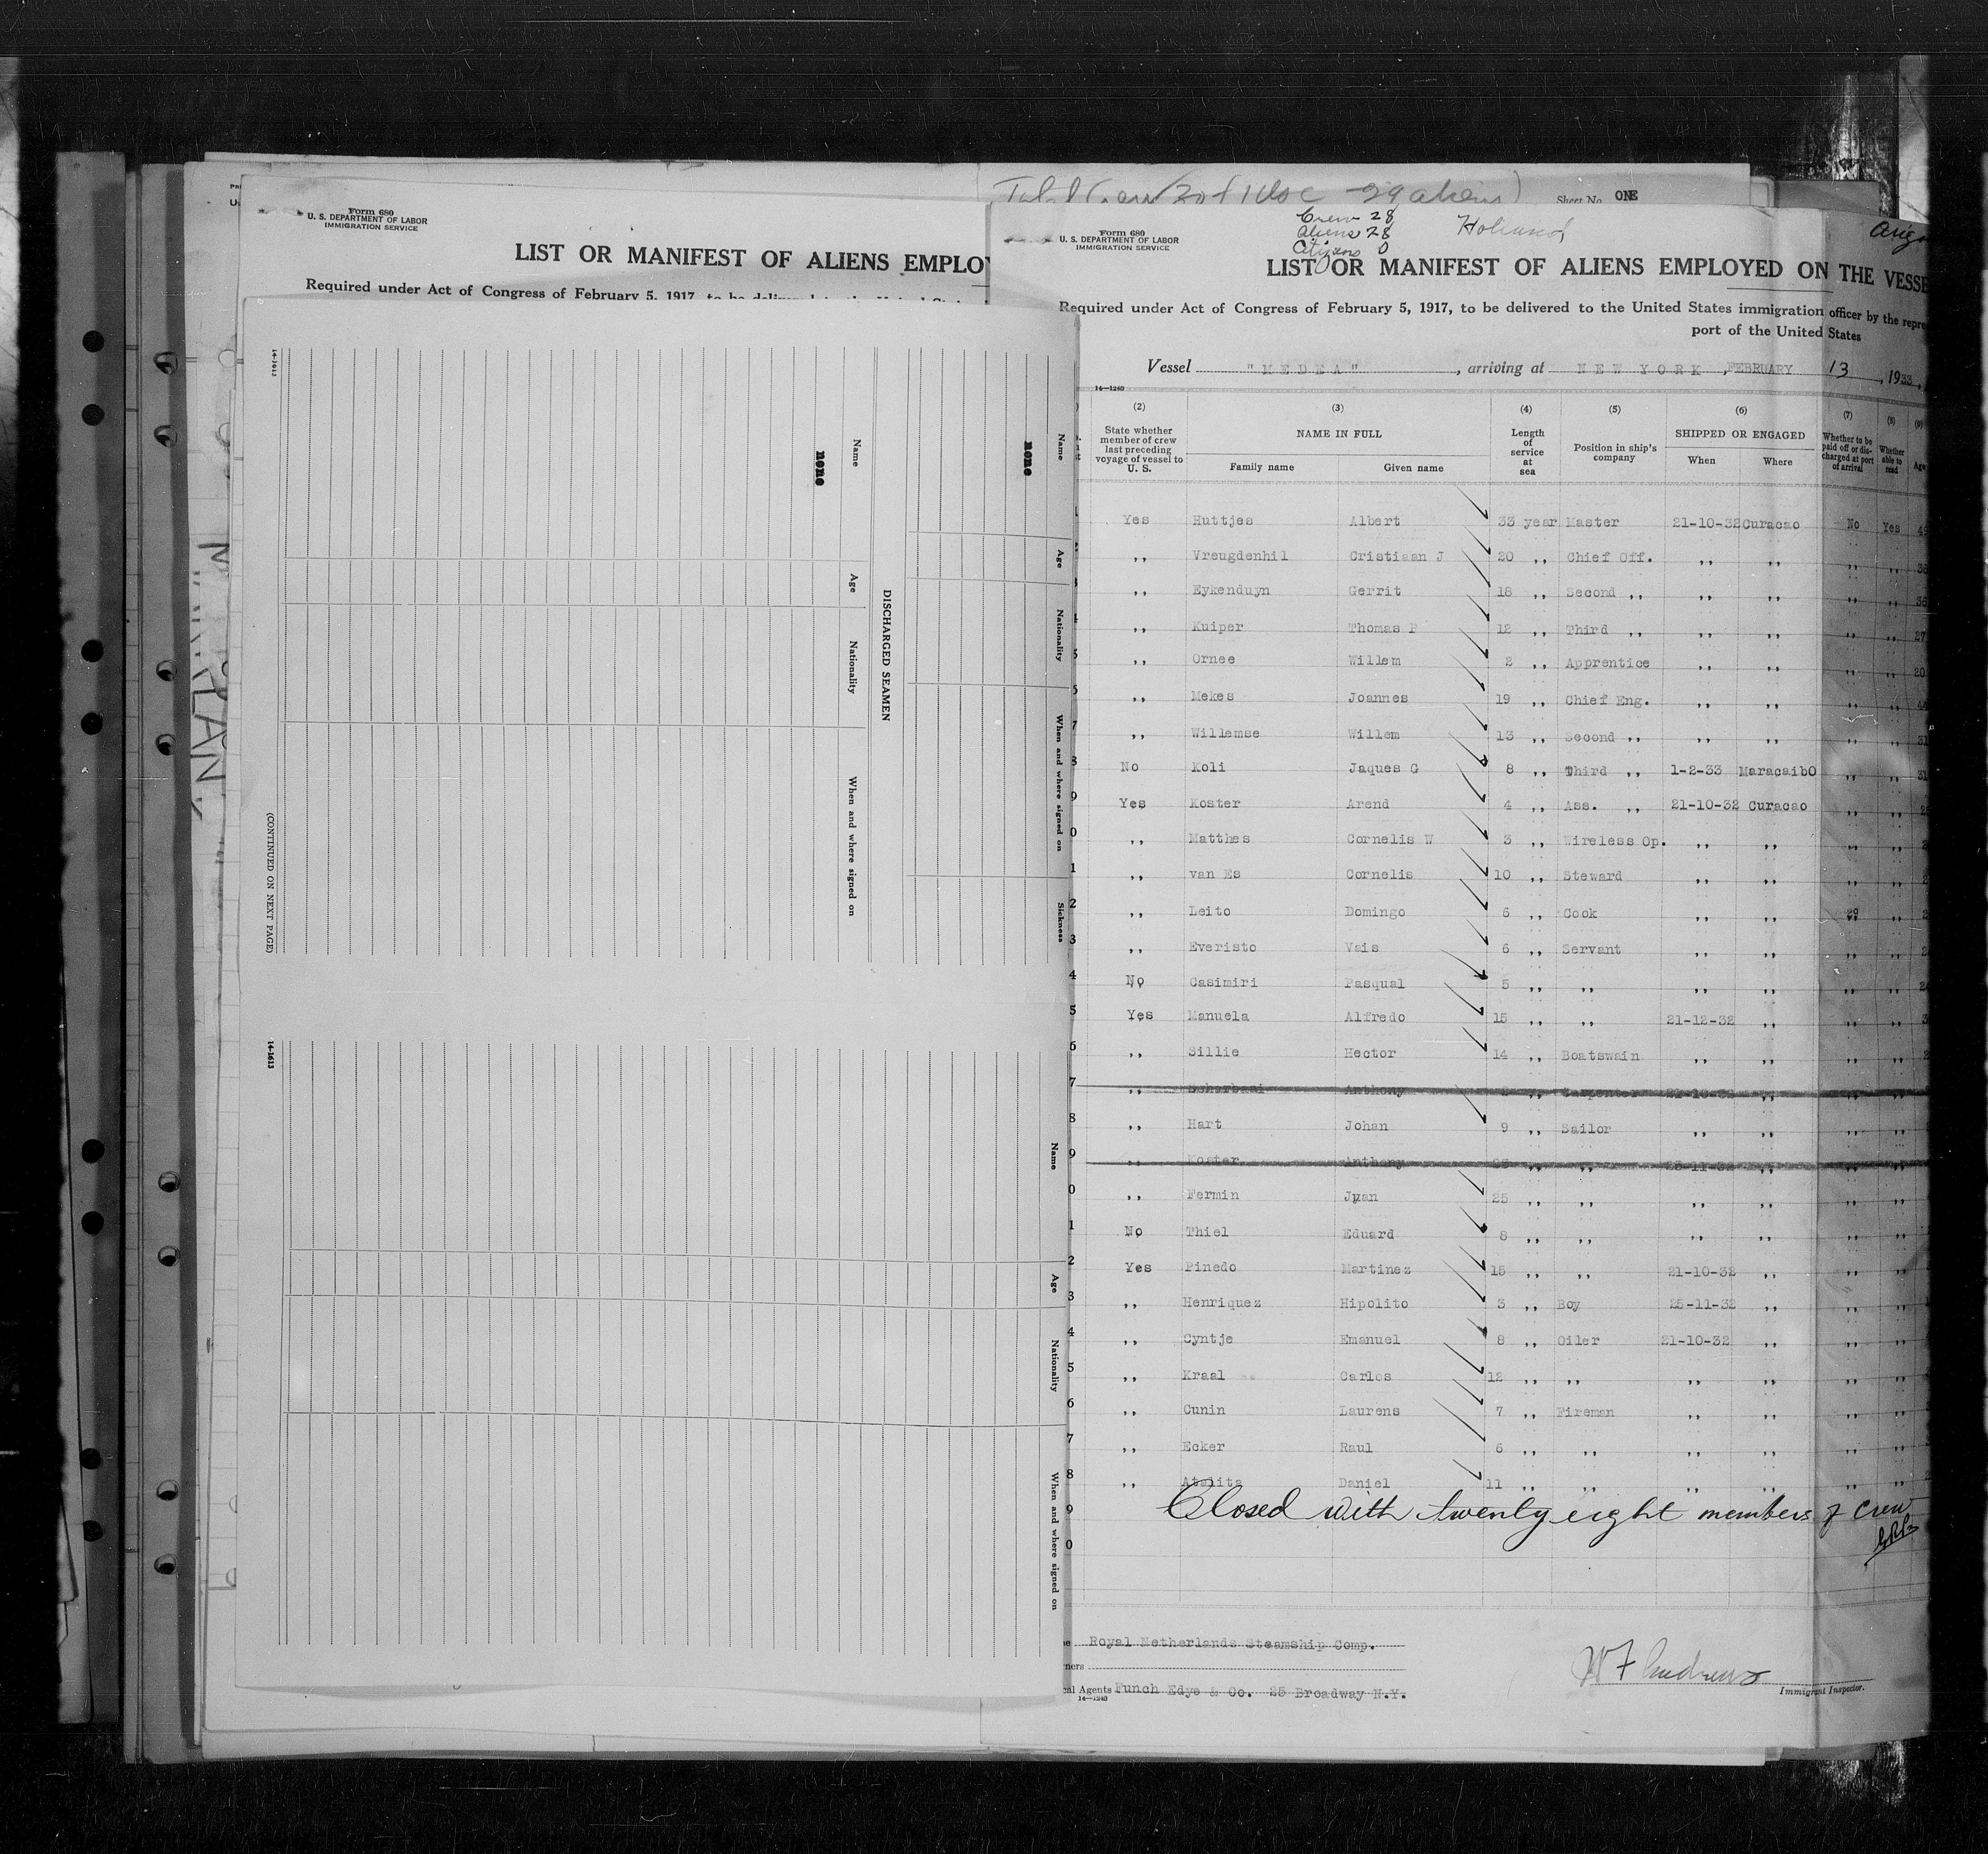 Form 680
U. S. DEPARTMENT OF LABOR
IMMIGRATION SERVICE
LIST OR MANIFEST OF ALIENS EMPLOY
Required under Act of Congress of February 5, 1917, to be
14-1613
Name
none
Age
Nationality
When and where signed on
DISCHARGED SEAMEN
(CONTINUED ON NEXT PAGE)
Name
none
Age
Nationality
When and where signed on
Sickness
14-1613
Name
Age
Nationality
When and where signed on
Sheet No. ONE
Form 680
U. S. DEPARTMENT OF LABOR
IMMIGRATION SERVICE
Crew 28
Aliens 28
Citizens 0
Holland
LIST OR MANIFEST OF ALIENS EMPLOYED ON THE VESSE
Required under Act of Congress of February 5, 1917, to be delivered to the United States immigration officer by the repre
port of the United States
Vessel "MEDEA", arriving at NEW YORK, FEBRUARY 13, 1933,
14-1240
(2) (3) (4) (5) (6) (7) (8) (9)
State whether member of crew last preceding voyage of vessel to U. S.
NAME IN FULL
Family name Given name
Length of service at sea
Position in ship's company
SHIPPED OR ENGAGED
When Where
Whether to be paid off or discharged at port of arrival
Whether able to read
Age
Yes Huttjes Albert 33 year Master 21-10-32 Curacao No Yes
,, Vreugdenhil Cristiaan J 20 ,, Chief Off. ,, ,, ,, ,,
,, Eykenduyn Gerrit 18 ,, Second ,, ,, ,, ,, ,,
,, Kuiper Thomas P 12 ,, Third ,, ,, ,, ,, ,, 27
,, Ornee Willem 2 ,, Apprentice ,, ,, ,, ,, 20
,, Mekes Joannes 19 ,, Chief Eng. ,, ,, ,, ,,
,, Willemse Willem 13 ,, Second ,, ,, ,, ,, ,, 31
No Koli Jaques G 8 ,, Third ,, 1-2-33 Maracaibo ,, ,, 31
Yes Koster Arend 4 ,, Ass. ,, 21-10-32 Curacao ,, ,,
,, Matthes Cornelis W 3 ,, Wireless Op. ,, ,, ,, ,,
,, van Es Cornelis 10 ,, Steward ,, ,, ,, ,,
,, Leito Domingo 6 ,, Cook ,, ,, ,, ,,
,, Everisto Vais 6 ,, Servant ,, ,, ,, ,,
No Casimiri Pasqual 5 ,, ,, ,, ,, ,, ,,
Yes Manuela Alfredo 15 ,, ,, 21-12-32 ,, ,, ,,
,, Sillie Hector 14 ,, Boatswain ,, ,, ,, ,,
,, Anthony 2 ,, Carpenter 21-10-32 ,,
,, Hart Johan 9 ,, Sailor ,, ,, ,, ,,
,, Koster Anthony ,, ,, 25-11-32 ,,
,, Fermin Juan 25 ,, ,, ,, ,, ,, ,,
No Thiel Eduard 8 ,, ,, ,, ,, ,, ,,
Yes Pinedo Martinez 15 ,, ,, 21-10-32 ,, ,, ,,
,, Henriquez Hipolito 3 ,, Boy 25-11-32 ,, ,, ,,
,, Cyntje Emanuel 8 ,, Oiler 21-10-32 ,, ,, ,,
,, Kraal Carlos 12 ,, ,, ,, ,, ,, ,,
,, Cunin Laurens 7 ,, Fireman ,, ,, ,, ,,
,, Ecker Raul 6 ,, ,, ,, ,, ,, ,,
,, Atalita Daniel 11 ,, ,, ,, ,, ,, ,,
Closed with twenty eight members of crew
Royal Netherlands Steamship Comp.
ners
cal Agents Funch Edye & Co. 25 Broadway N.Y.
14-1240
W F Andrews
Immigrant Inspector.